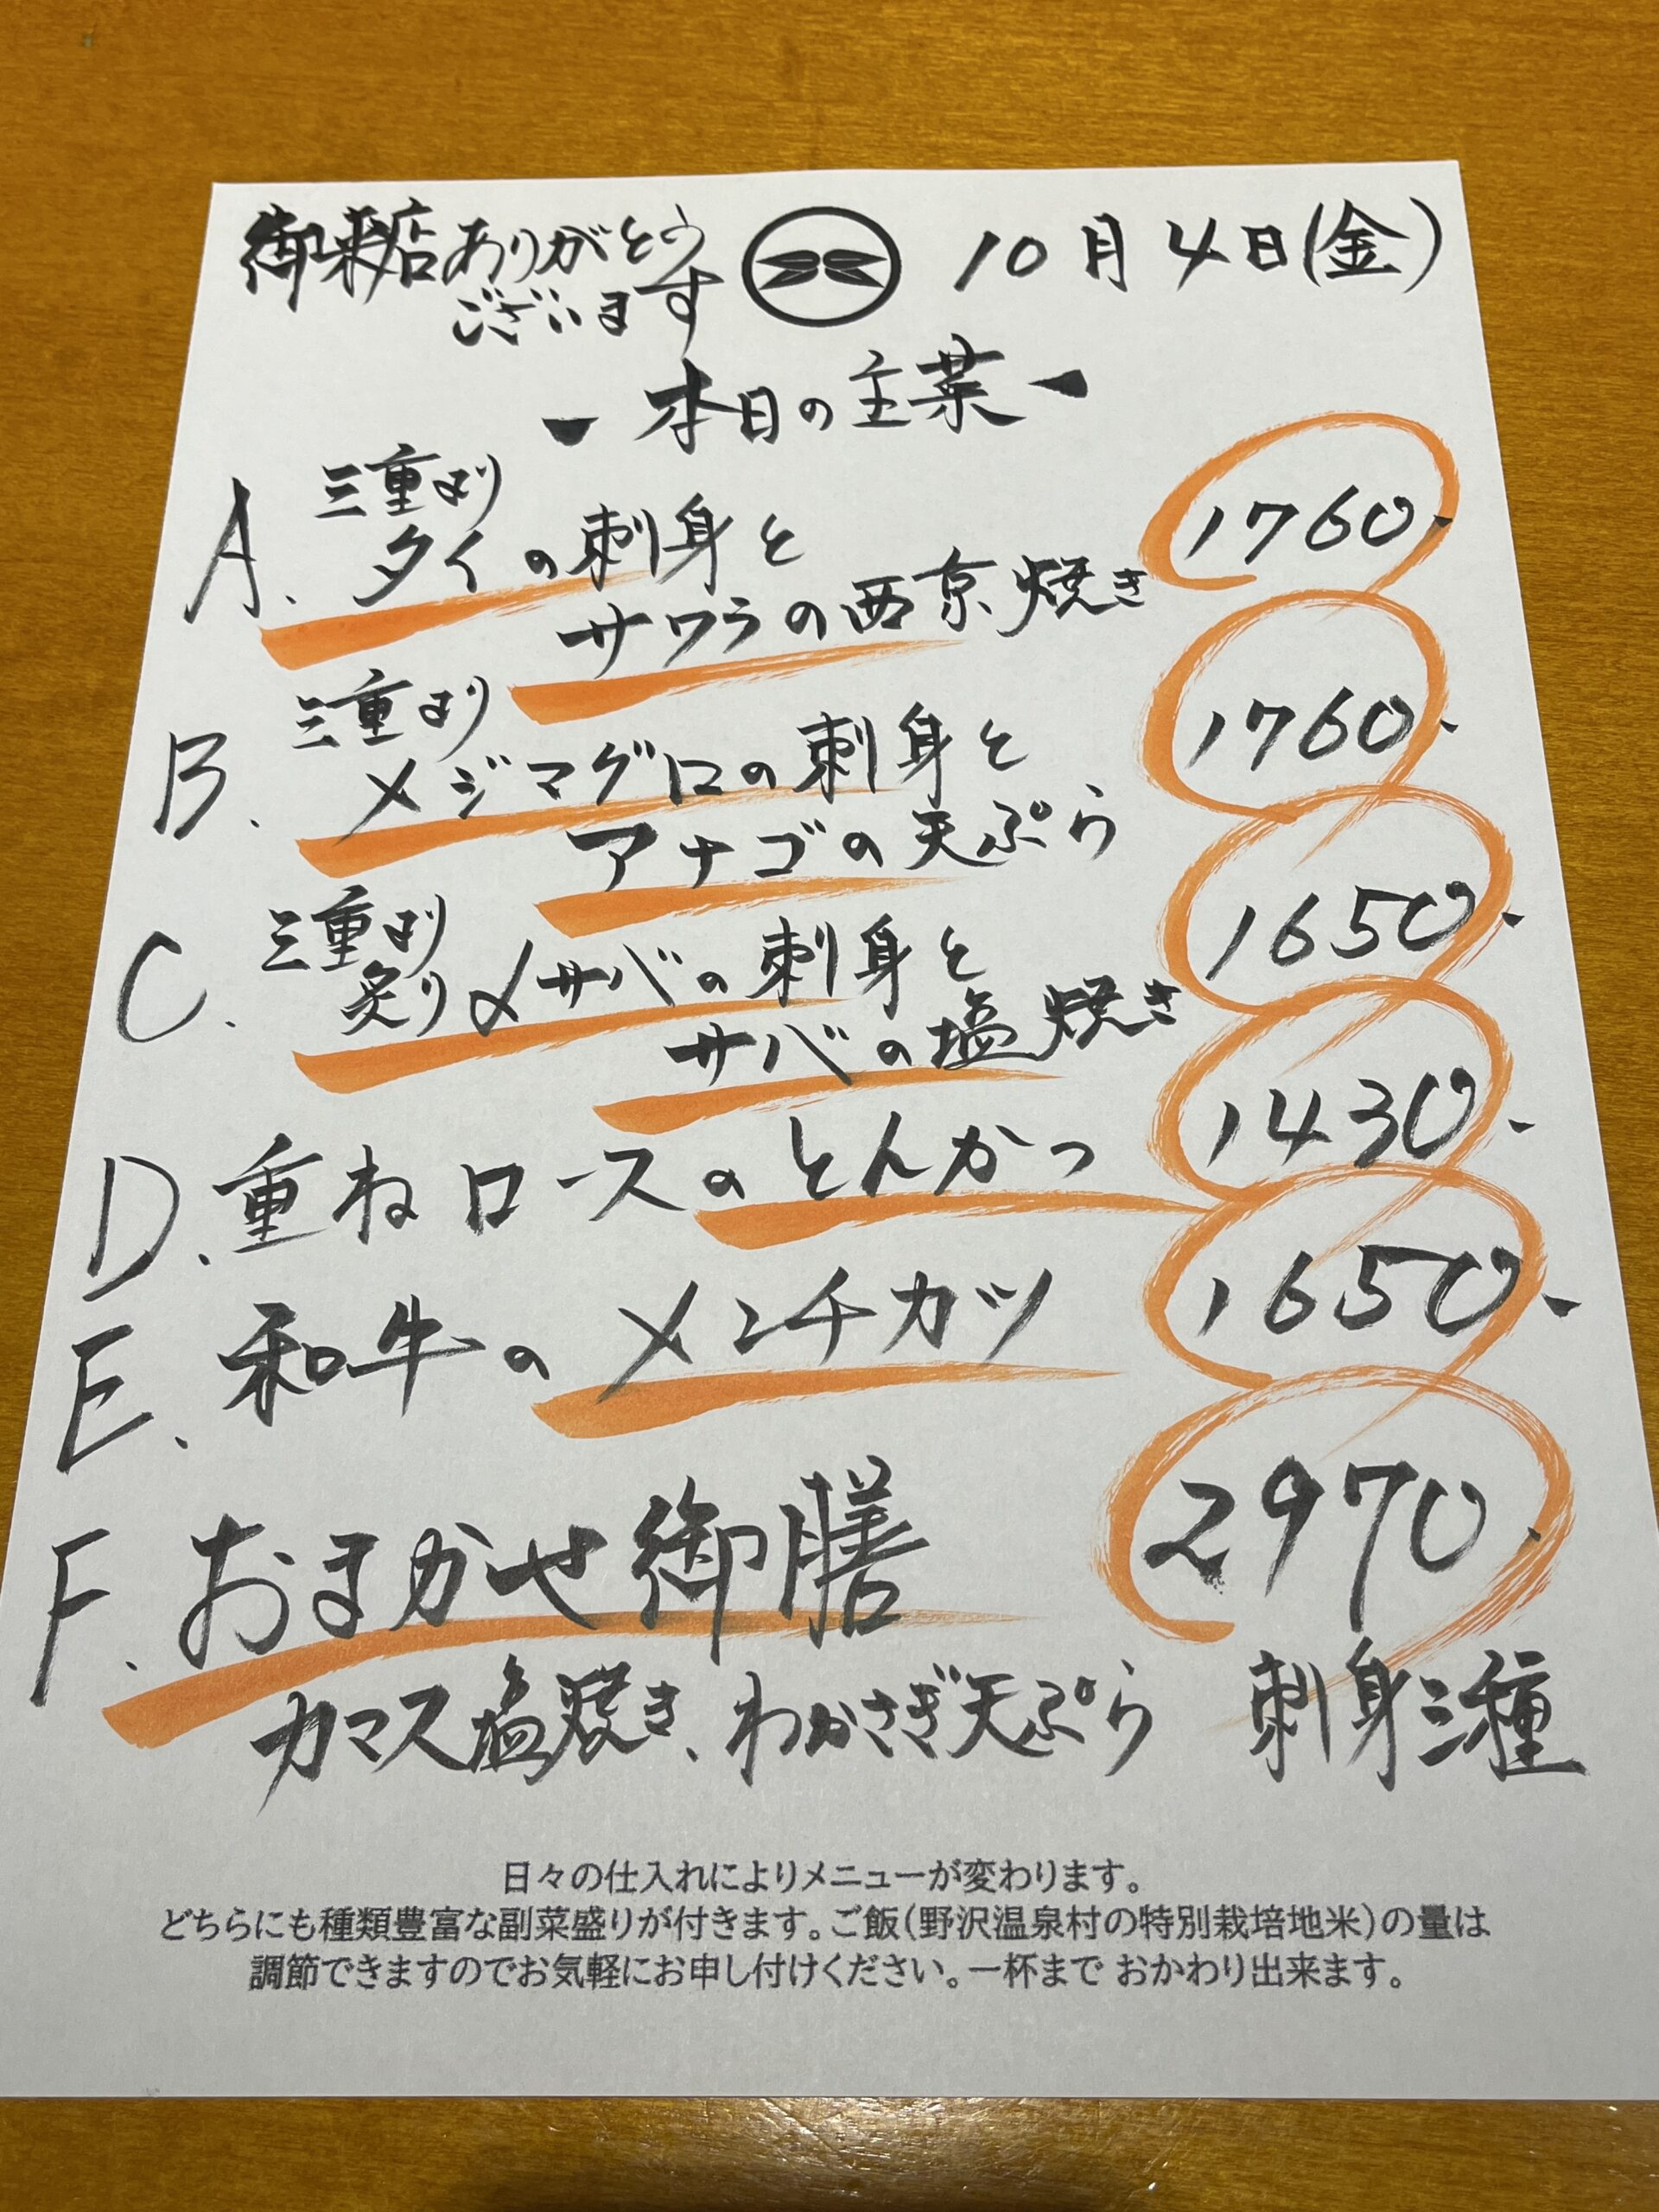 御来店ありがとう
ございます
10月4日(金)
本日の主菜
A. 三重より
タイの刺身と
サワラの西京焼き
1760.
B. 三重より
メジマグロの刺身と
アナゴの天ぷら
1760.
C. 三重より
炙り〆サバの刺身と
サバの塩焼き
1650.
D. 重ねロースのとんかつ
1430.
E. 和牛のメンチカツ
1650.
F. おまかせ御膳
2970.
カマス塩焼き、わかさぎ天ぷら 刺身三種
日々の仕入れによりメニューが変わります。
どちらにも種類豊富な副菜盛りが付きます。ご飯(野沢温泉村の特別栽培地米)の量は
調節できますのでお気軽にお申し付けください。一杯まで おかわり出来ます。